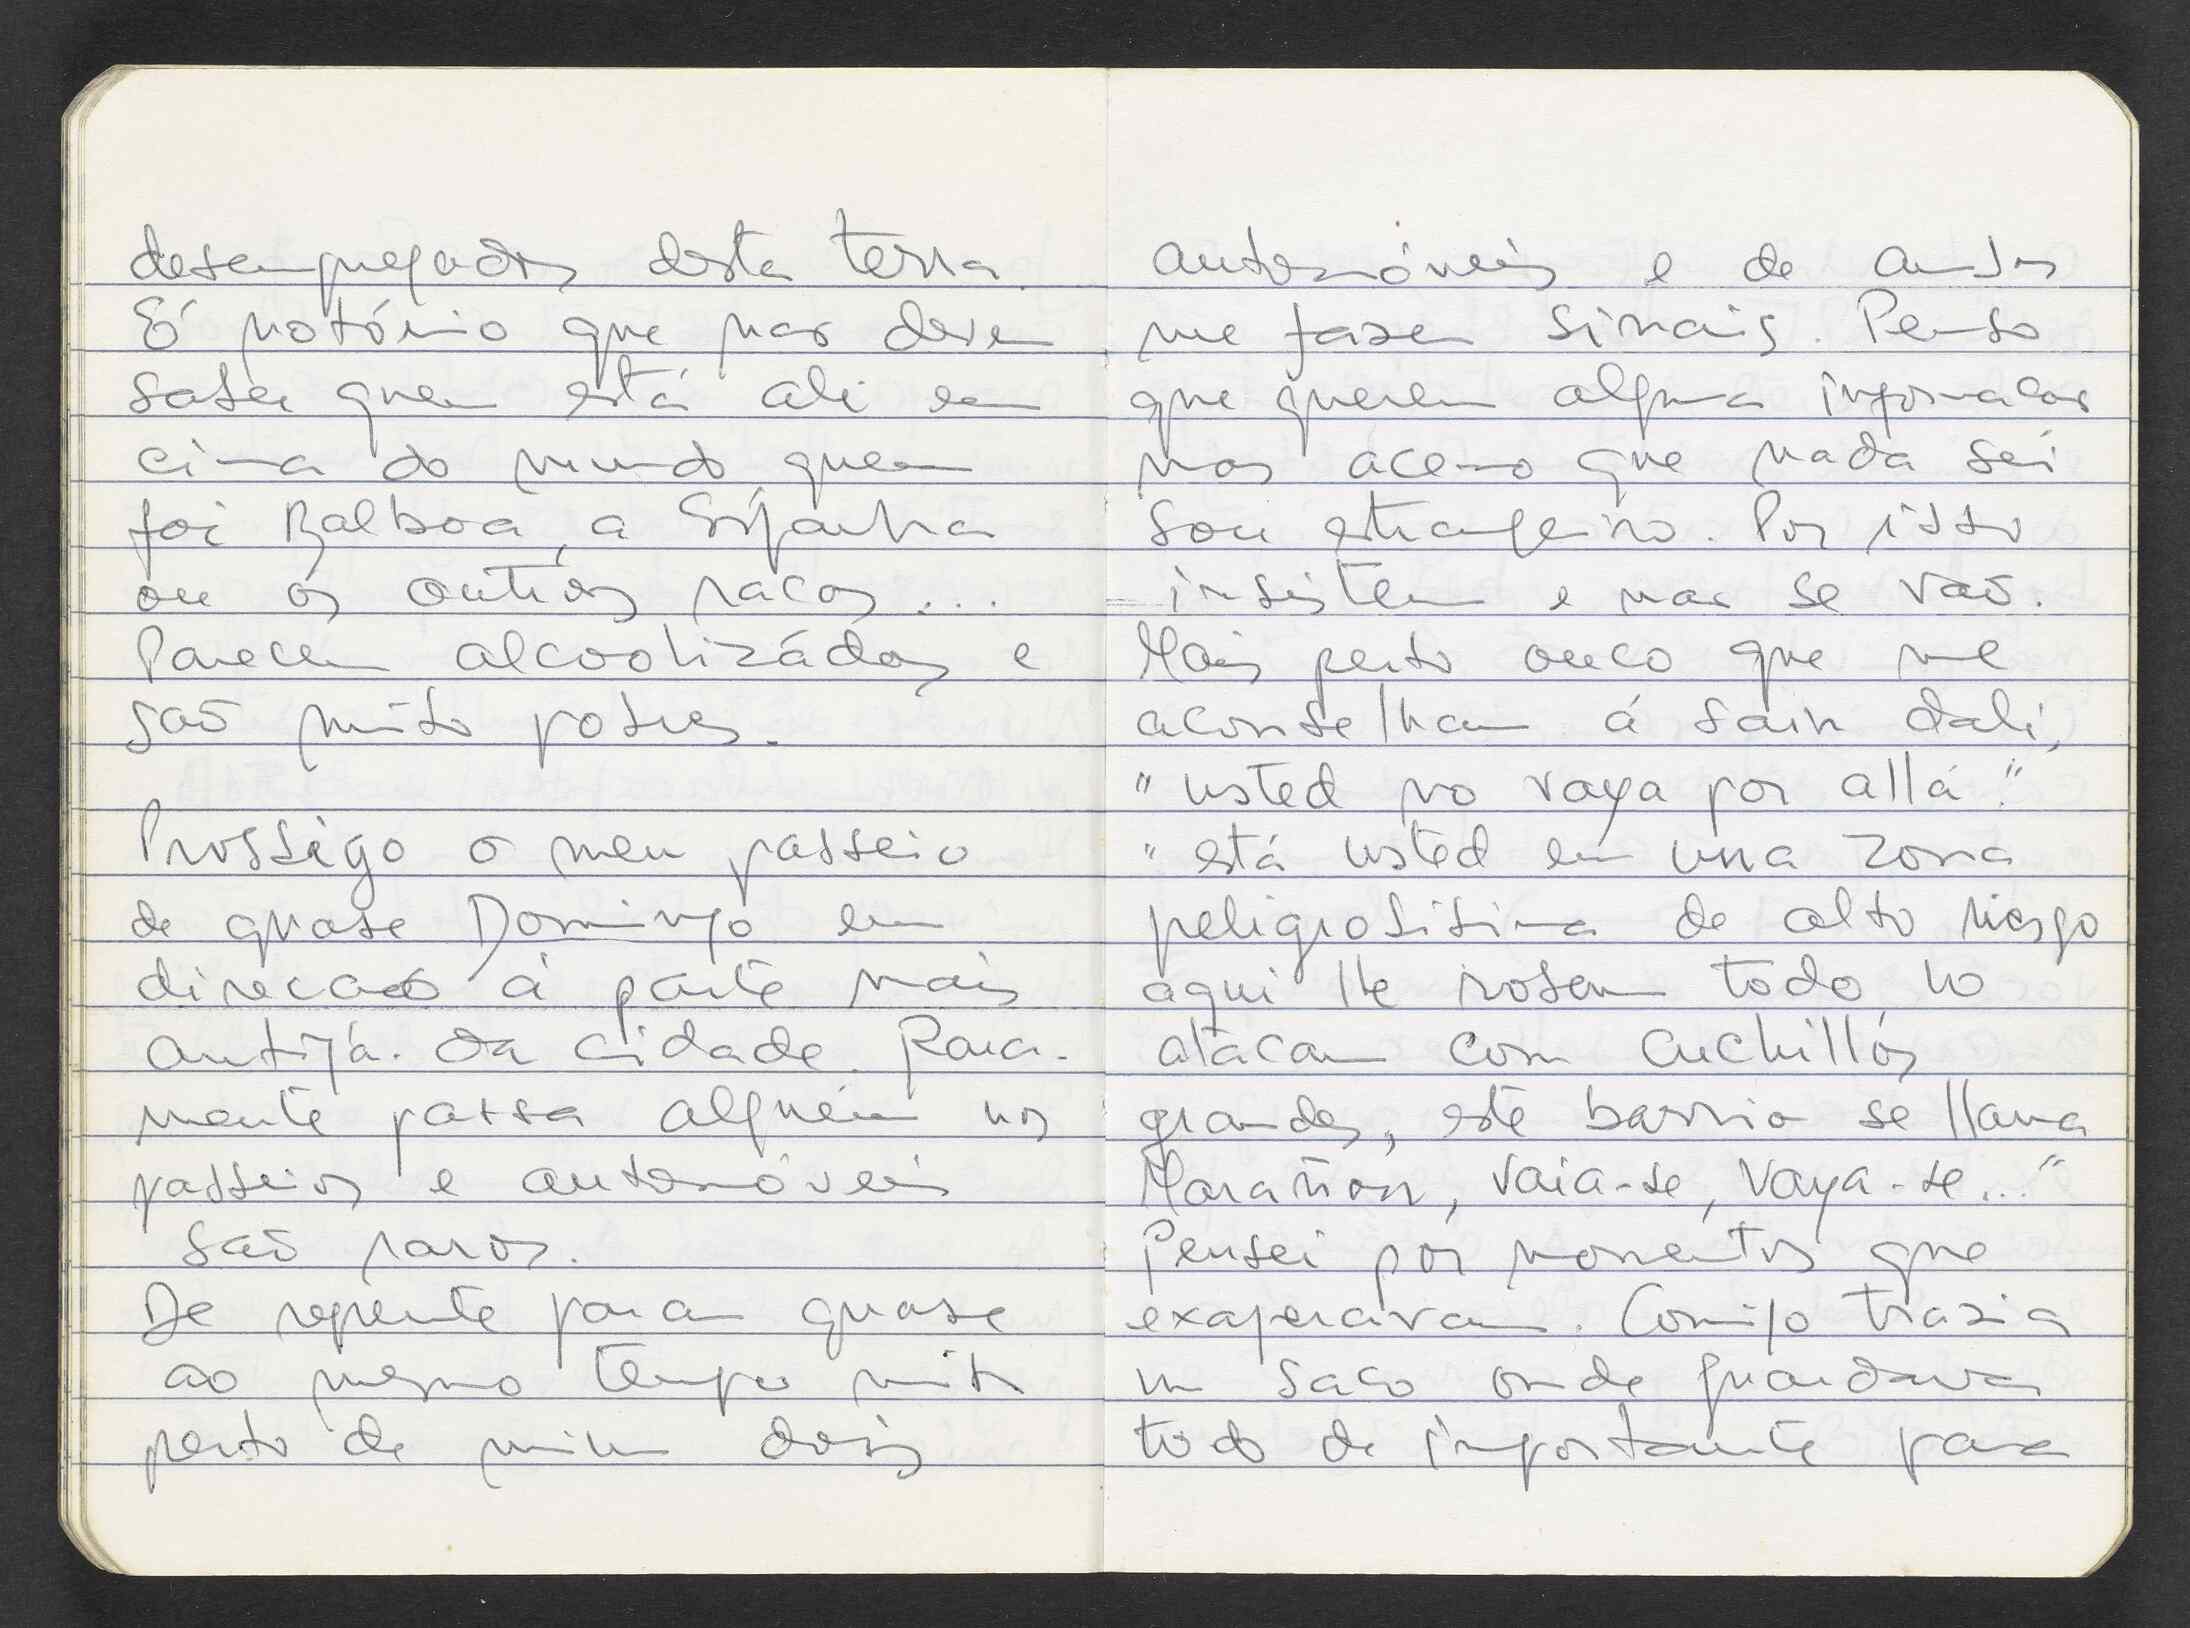 desempregados desta terra.
É notório que nao devem
saber quem está ali em
cima do mundo quem
foi Balboa, a Espanha
ou os outros racas...
Parecem alcoolizádos e
saõ muito pobres.
Prossigo o meu passeio
de quase Domingo em
direcao á parte mais
antiga. da cidade. Rara-
mente passa alguém nos
passeios e automóveis
saõ raros.
De repente param quase
ao mesmo tempo muito
perto de mim dois
automóveis e de ambos
me fazem sinais. Penso
que querem alguma informacao
mas aceno que nada sei
sou estrangeiro. Por isso
insistem e nao se vaõ.
Mais perto ouco que me
aconselham á sair dali,
"usted no vaya por allá."
"está usted em una zona
peligrosisima de alto riesgo
aqui lle roban todo lo
atacam com cuchillos
grandes, este barrio se llama
Marañon, vaia-se, vaya-se..."
Pensei por momentos que
exageravam. Comigo trazia
um saco onde guardava
tudo de importante para